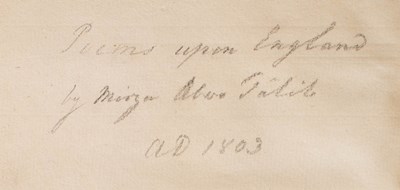 Poems upon England
by Mirza Abu Tâlib
AD 1803